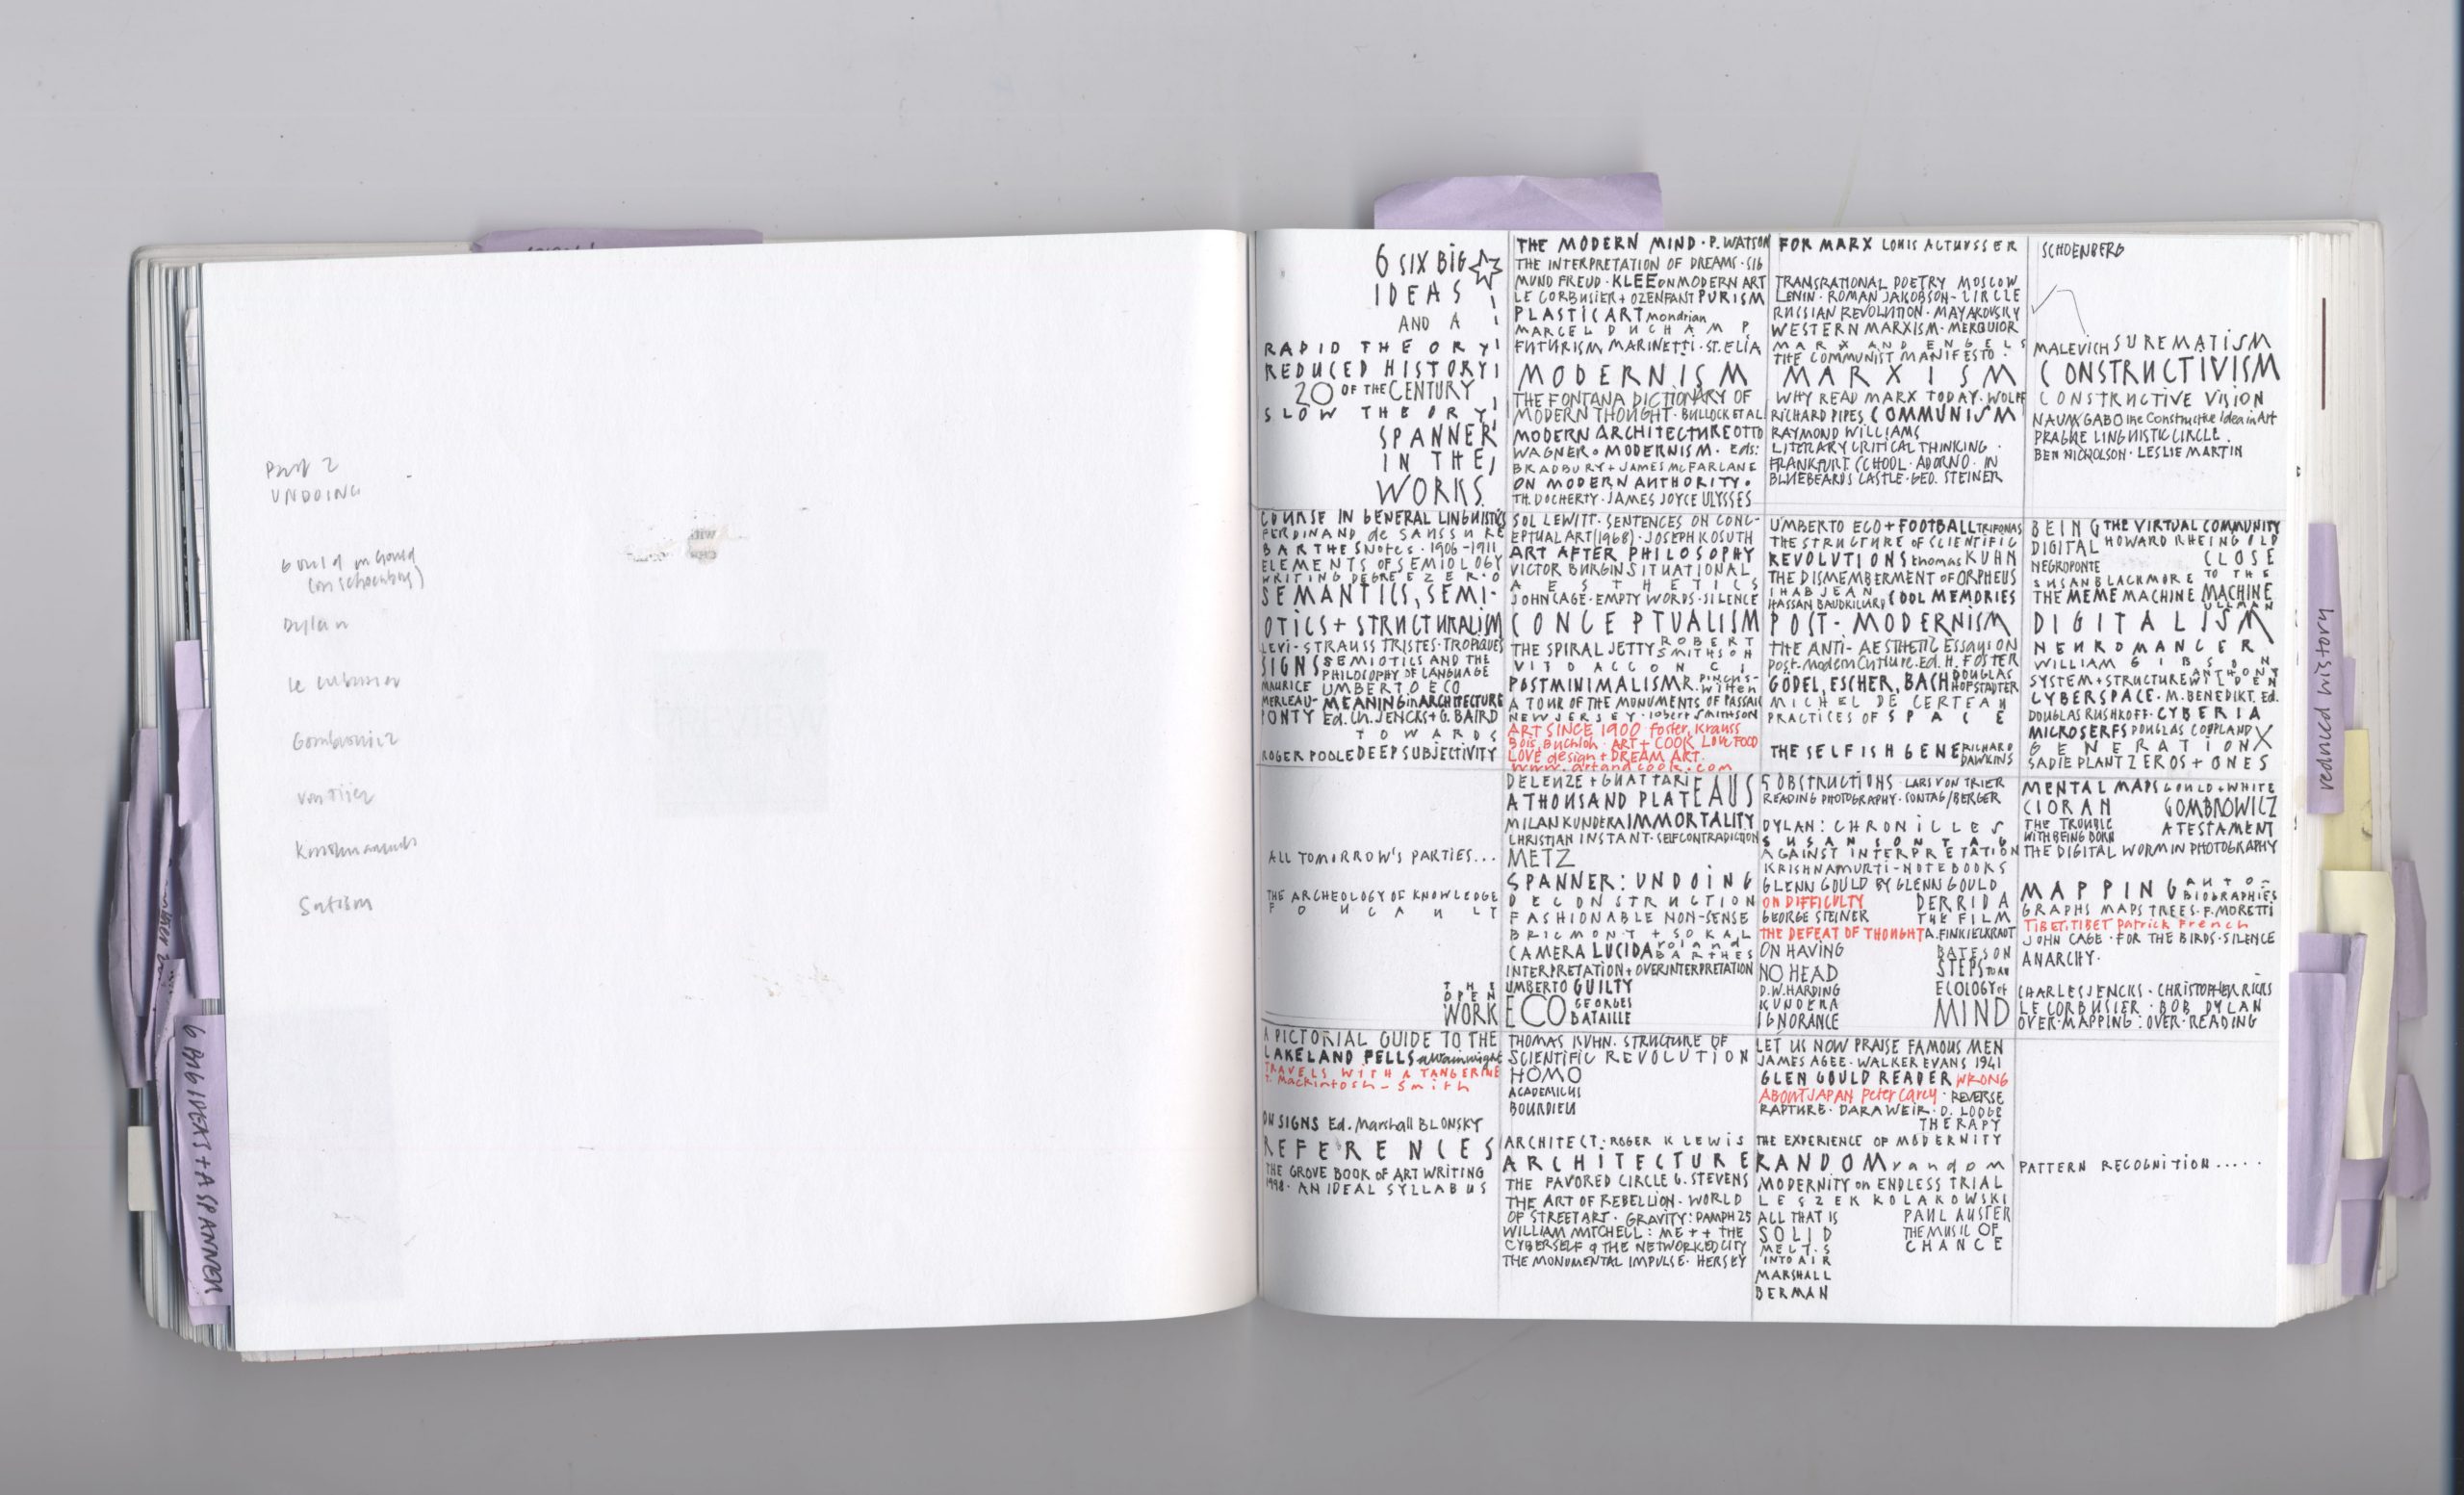 Part 2
UNDOING
Gould on Gould
(on Schoenberg)
Dylan
Le Corbusier
Gombrowicz
von Trier
Satism
6 BIG IDEAS + A SPANNER
reduced history
6 SIX BIG
IDEAS
AND A
RAPID THEORY
REDUCED HISTORY
20 OF THE CENTURY
SLOW THEORY
SPANNER
IN THE
WORKS.
THE MODERN MIND · P. WATSON
THE INTERPRETATION OF DREAMS · SIG
MUND FREUD · KLEE ON MODERN ART
LE CORBUSIER + OZENFANT PURISM
PLASTIC ART Mondrian
MARCEL DUCHAMP
FUTURISM MARINETTI · ST. ELIA
MODERNISM
THE FONTANA DICTIONARY OF
MODERN THOUGHT · BULLOCK ET AL
MODERN ARCHITECTURE OTTO
WAGNER · MODERNISM · Eds:
BRADBURY + JAMES McFARLANE
ON MODERN AUTHORITY ·
TH. DOCHERTY · JAMES JOYCE ULYSSES
FOR MARX LOUIS ALTHUSSER
TRANSRATIONAL POETRY MOSCOW
LENIN · ROMAN JAKOBSON - CIRCLE
RUSSIAN REVOLUTION · MAYAKOVSKY
WESTERN MARXISM · MERQUIOR
MARX AND ENGELS
THE COMMUNIST MANIFESTO ·
MARXISM
WHY READ MARX TODAY · WOLFF
RICHARD PIPES COMMUNISM
RAYMOND WILLIAMS
LITERARY CRITICAL THINKING ·
FRANKFURT SCHOOL · ADORNO · IN
BLUEBEARDS CASTLE · GEO. STEINER
SCHOENBERG
MALEVICH SUREMATISM
CONSTRUCTIVISM
CONSTRUCTIVE VISION
NAUM GABO the Constructive Idea in Art
PRAGUE LINGUISTIC CIRCLE ·
BEN NICHOLSON · LESLIE MARTIN
COURSE IN GENERAL LINGUISTICS
FERDINAND de SAUSSURE
BARTHES Notes · 1906-1911
ELEMENTS OF SEMIOLOGY
WRITING DEGREE ZERO
SEMANTICS, SEMI-
OTICS + STRUCTURALISM
LEVI-STRAUSS TRISTES · TROPIQUES
SIGNS SEMIOTICS AND THE
PHILOSOPHY OF LANGUAGE
MAURICE UMBERTO ECO
MERLEAU- MEANING in ARCHITECTURE
PONTY Ed. Ch. JENCKS + G. BAIRD
TOWARDS
ROGER POOLE DEEP SUBJECTIVITY
SOL LEWITT · SENTENCES ON CONC-
EPTUAL ART (1968) · JOSEPH KOSUTH
ART AFTER PHILOSOPHY
VICTOR BURGIN SITUATIONAL
AESTHETICS
JOHN CAGE · EMPTY WORDS · SILENCE
CONCEPTUALISM
THE SPIRAL JETTY ROBERT SMITHSON
VITO ACCONCI
POSTMINIMALISM R. PINCUS-Witten
A TOUR OF THE MONUMENTS OF PASSAIC
NEW JERSEY · robert smithson
ART SINCE 1900 Foster, Krauss
Bois, Buchloh · ART + COOK LOVE FOOD
LOVE design + DREAM ART.
www.artandcook.com
UMBERTO ECO + FOOTBALL TRIFONAS
THE STRUCTURE OF SCIENTIFIC
REVOLUTIONS thomas KUHN
THE DISMEMBERMENT OF ORPHEUS
IHAB JEAN
HASSAN BAUDRILLARD COOL MEMORIES
POST-MODERNISM
THE ANTI-AESTHETIC ESSAYS ON
Post-Modern Culture. Ed. H. FOSTER
GÖDEL, ESCHER, BACH DOUGLAS HOFSTADTER
MICHEL DE CERTEAU
PRACTICES OF SPACE
THE SELFISH GENE RICHARD DAWKINS
BEING THE VIRTUAL COMMUNITY
DIGITAL HOWARD RHEINGOLD
NEGROPONTE CLOSE
SUSAN BLACKMORE TO THE
THE MEME MACHINE MACHINE
ULLMAN
DIGITALISM
NEUROMANCER
WILLIAM GIBSON
SYSTEM + STRUCTURE ANTHONY WILDEN
CYBERSPACE · M. BENEDIKT. Ed.
DOUGLAS RUSHKOFF · CYBERIA
MICROSERFS DOUGLAS COUPLAND
GENERATION X
SADIE PLANT ZEROS + ONES
ALL TOMORROW'S PARTIES...
THE ARCHEOLOGY OF KNOWLEDGE
FOUCAULT
THE
OPEN
WORK
DELEUZE + GUATTARI
A THOUSAND PLATEAUS
MILAN KUNDERA IMMORTALITY
CHRISTIAN INSTANT · SELF CONTRADICTION
METZ
SPANNER: UNDOING
DECONSTRUCTION
FASHIONABLE NON-SENSE
BRICMONT + SOKAL
CAMERA LUCIDA roland BARTHES
INTERPRETATION + OVERINTERPRETATION
UMBERTO GUILTY
ECO GEORGES
BATAILLE
5 OBSTRUCTIONS · LARS VON TRIER
READING PHOTOGRAPHY · SONTAG/BERGER
DYLAN: CHRONICLES
SUSAN SONTAG
AGAINST INTERPRETATION
KRISHNAMURTI - NOTEBOOKS
GLENN GOULD BY GLENN GOULD
ON DIFFICULTY DERRIDA
GEORGE STEINER THE FILM
THE DEFEAT OF THOUGHT A. FINKIELKRAUT
ON HAVING BATESON
NO HEAD STEPS TO AN
D.W. HARDING ECOLOGY of
KUNDERA MIND
IGNORANCE
MENTAL MAPS GOULD + WHITE
CIORAN GOMBROWICZ
THE TROUBLE A TESTAMENT
WITH BEING BORN
THE DIGITAL WORM IN PHOTOGRAPHY
MAPPING AUTO-
BIOGRAPHIES
GRAPHS MAPS TREES · F. MORETTI
TIBET, TIBET Patrick French
JOHN CAGE · FOR THE BIRDS · SILENCE
ANARCHY ·
CHARLES JENCKS · CHRISTOPHER RICKS
LE CORBUSIER · BOB DYLAN
OVER-MAPPING: OVER-READING
A PICTORIAL GUIDE TO THE
LAKELAND FELLS a Wainwright
TRAVELS WITH A TANGERINE
T. Mackintosh-Smith
ON SIGNS Ed. Marshall BLONSKY
REFERENCES
THE GROVE BOOK OF ART WRITING
1998 · AN IDEAL SYLLABUS
THOMAS KUHN. STRUCTURE OF
SCIENTIFIC REVOLUTION
HOMO
ACADEMICUS
BOURDIEU
ARCHITECT: ROGER K LEWIS
ARCHITECTURE
THE FAVORED CIRCLE G. STEVENS
THE ART OF REBELLION · WORLD
OF STREET ART · GRAVITY: PAMPH 25
WILLIAM MITCHELL: ME++ THE
CYBERSELF & THE NETWORKED CITY
THE MONUMENTAL IMPULSE · HERSEY
LET US NOW PRAISE FAMOUS MEN
JAMES AGEE · WALKER EVANS 1941
GLEN GOULD READER WRONG
ABOUT JAPAN Peter Carey · REVERSE
RAPTURE · DARA WEIR · D. LODGE
THERAPY
THE EXPERIENCE OF MODERNITY
RANDOM random
MODERNITY on ENDLESS TRIAL
LESZEK KOLAKOWSKI
ALL THAT IS PAUL AUSTER
SOLID THE MUSIC OF
MELTS CHANCE
INTO AIR
MARSHALL
BERMAN
PATTERN RECOGNITION.....